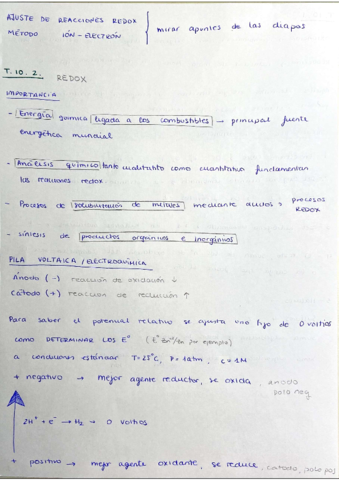 AJUSTE DE REACCIONES REDOX
MÉTODO IÓN-ELECTRÓN
mirar apuntes de las diapos
T.10.2. REDOX
IMPORTANCIA
- Energía química ligada a los combustibles → principal fuente
energética mundial
- Análisis químico tanto cualitativo como cuantitativo fundamentan
las reacciones redox.
- Procesos de solubilización de metales mediante ácidos y procesos
REDOX
- síntesis de productos orgánicos e inorgánicos
PILA VOLTAICA / ELECTROQUÍMICA
Ánodo (-) reacción de oxidación ↓
Cátodo (+) reacción de reducción ↑
Para saber el potencial relativo se ajusta uno fijo de 0 voltios
como DETERMINAR LOS E° (
por ejemplo)
a condiciones estándar T=25°C, P=1atm, c=1M
+ negativo → mejor agente reductor, se oxida, ánodo
polo neg
2H⁺ + e⁻ → H₂ → 0 voltios
+ positivo → mejor agente oxidante, se reduce, cátodo, polo pos